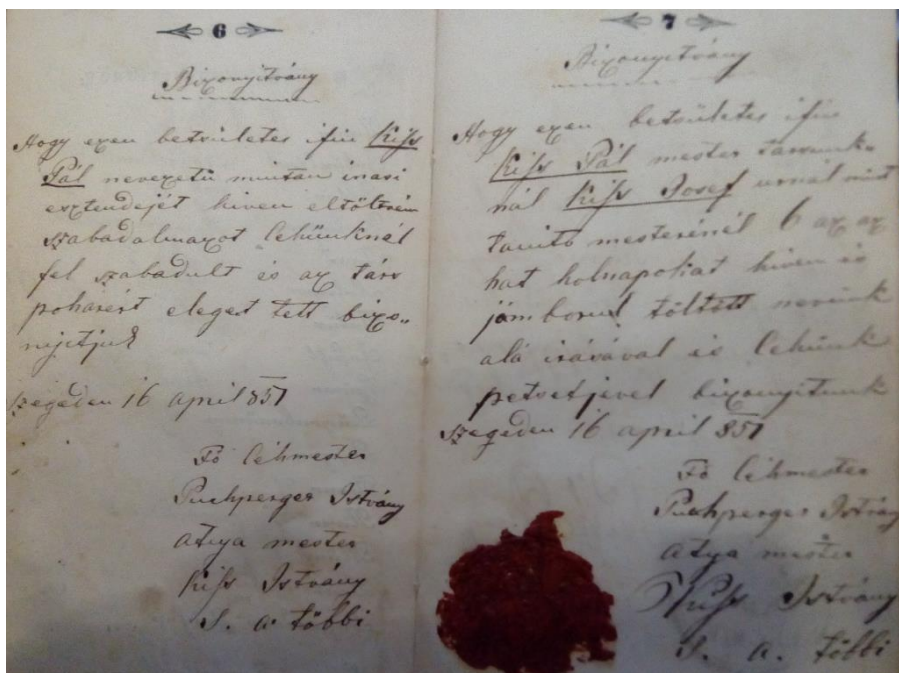 6
Bizonyitvány
Hogy ezen betsületes ifiú Kiss
Pál nevezetü miutan inasi
esztendejét hiven eltöltvén
szabadalmazot Céhünknél
fel szabadult és az társ
poharért eleget tett bizo„
nyitjuk
Szegeden 16 april 851
Fö Céhmester
Puchperger István
atya mester
Kiss István
S. a többi
7
Bizonyitvány
Hogy ezen betsületes ifiu
Kiss Pál mester társunk„
nál Kiss Josef urnál mint
tanitó mesterénél 6 az az
hat holnapokat hiven és
jámborul töltött nevünk
alá irásával és Céhünk
petsetjével bizonyitunk
Szegeden 16 april 851
Fö Céhmester
Puchperger István
atya mester
Kiss István
S. a. többi